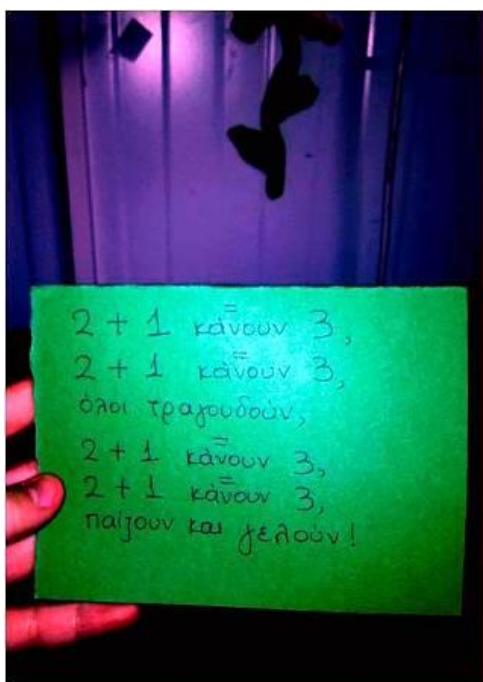 2 + 1 κάνουν 3,
2 + 1 κάνουν 3,
όλοι τραγουδούν,
2 + 1 κάνουν 3,
2 + 1 κάνουν 3,
παίζουν και γελούν!